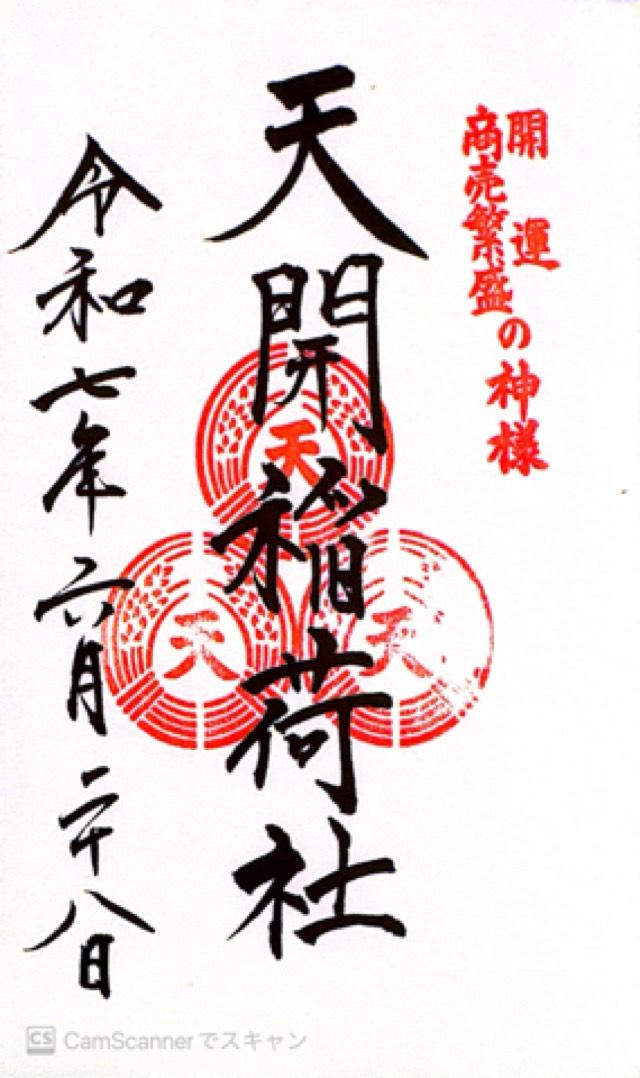 開運
商売繁盛
の神様
天開稲荷社
天
天
天
令和七年六月二十八日
CS CamScannerでスキャン